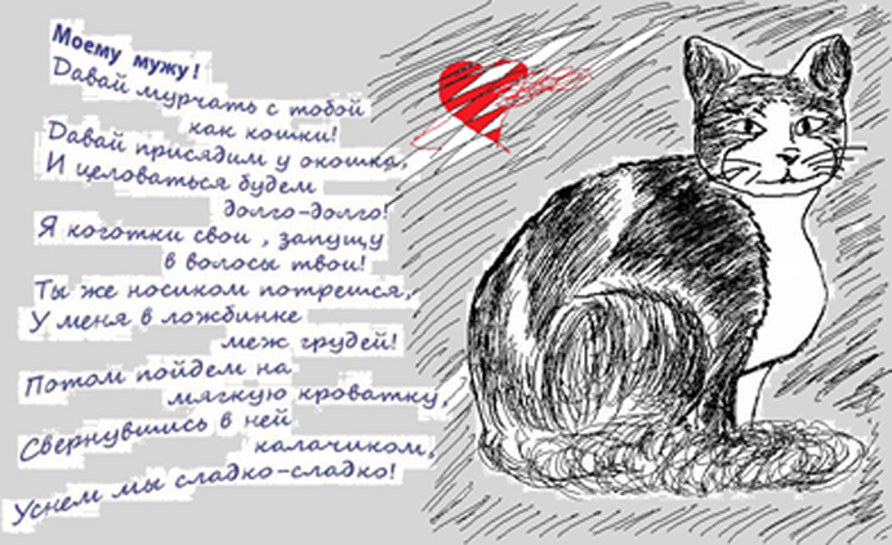 Моему мужу!
Давай мурчать с тобой
как кошки!
Давай присядим у окошка,
И целоваться будем
долго-долго!
Я коготки свои , запущу
в волосы твои!
Ты же носиком потрешся,
У меня в ложбинке
меж грудей!
Потом пойдем на
мягкую кроватку,
Свернувшись в ней
калачиком,
Уснем мы сладко-сладко!